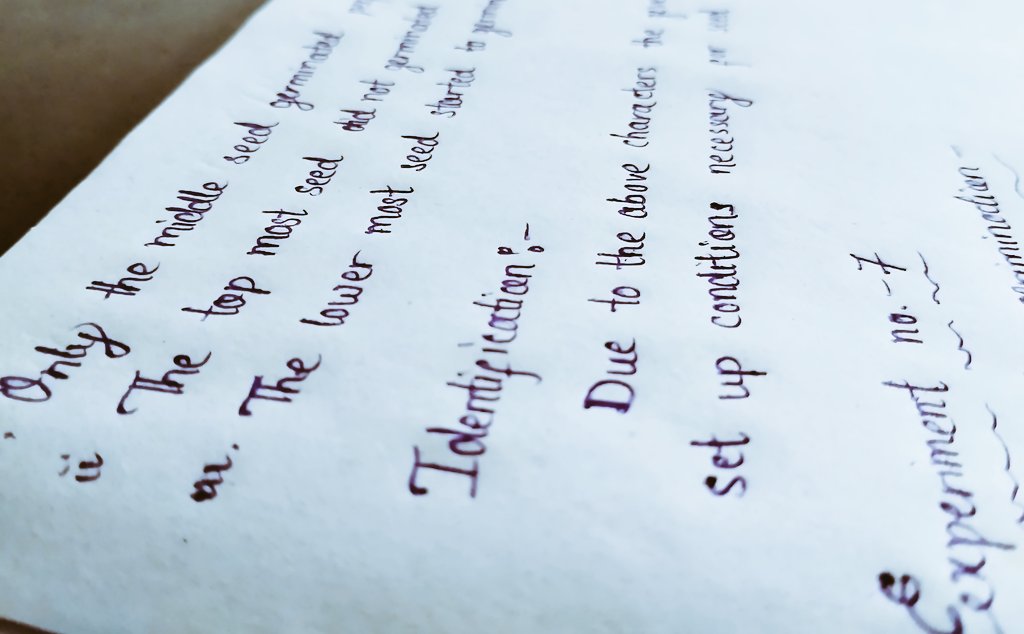 Only the middle seed germinated
ii The top most seed did not germinated
iii. The lower most seed started to
Identification:-
Due to the above characters the
set up conditions necessary for seed
Experiment no.-7